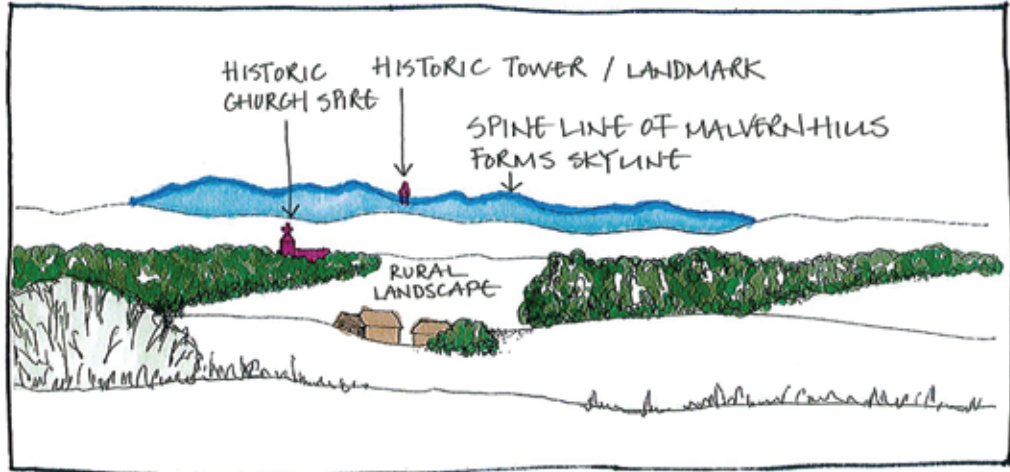 HISTORIC
CHURCH SPIRE
HISTORIC TOWER / LANDMARK
SPINE LINE OF MALVERN HILLS
FORMS SKYLINE
RURAL
LANDSCAPE